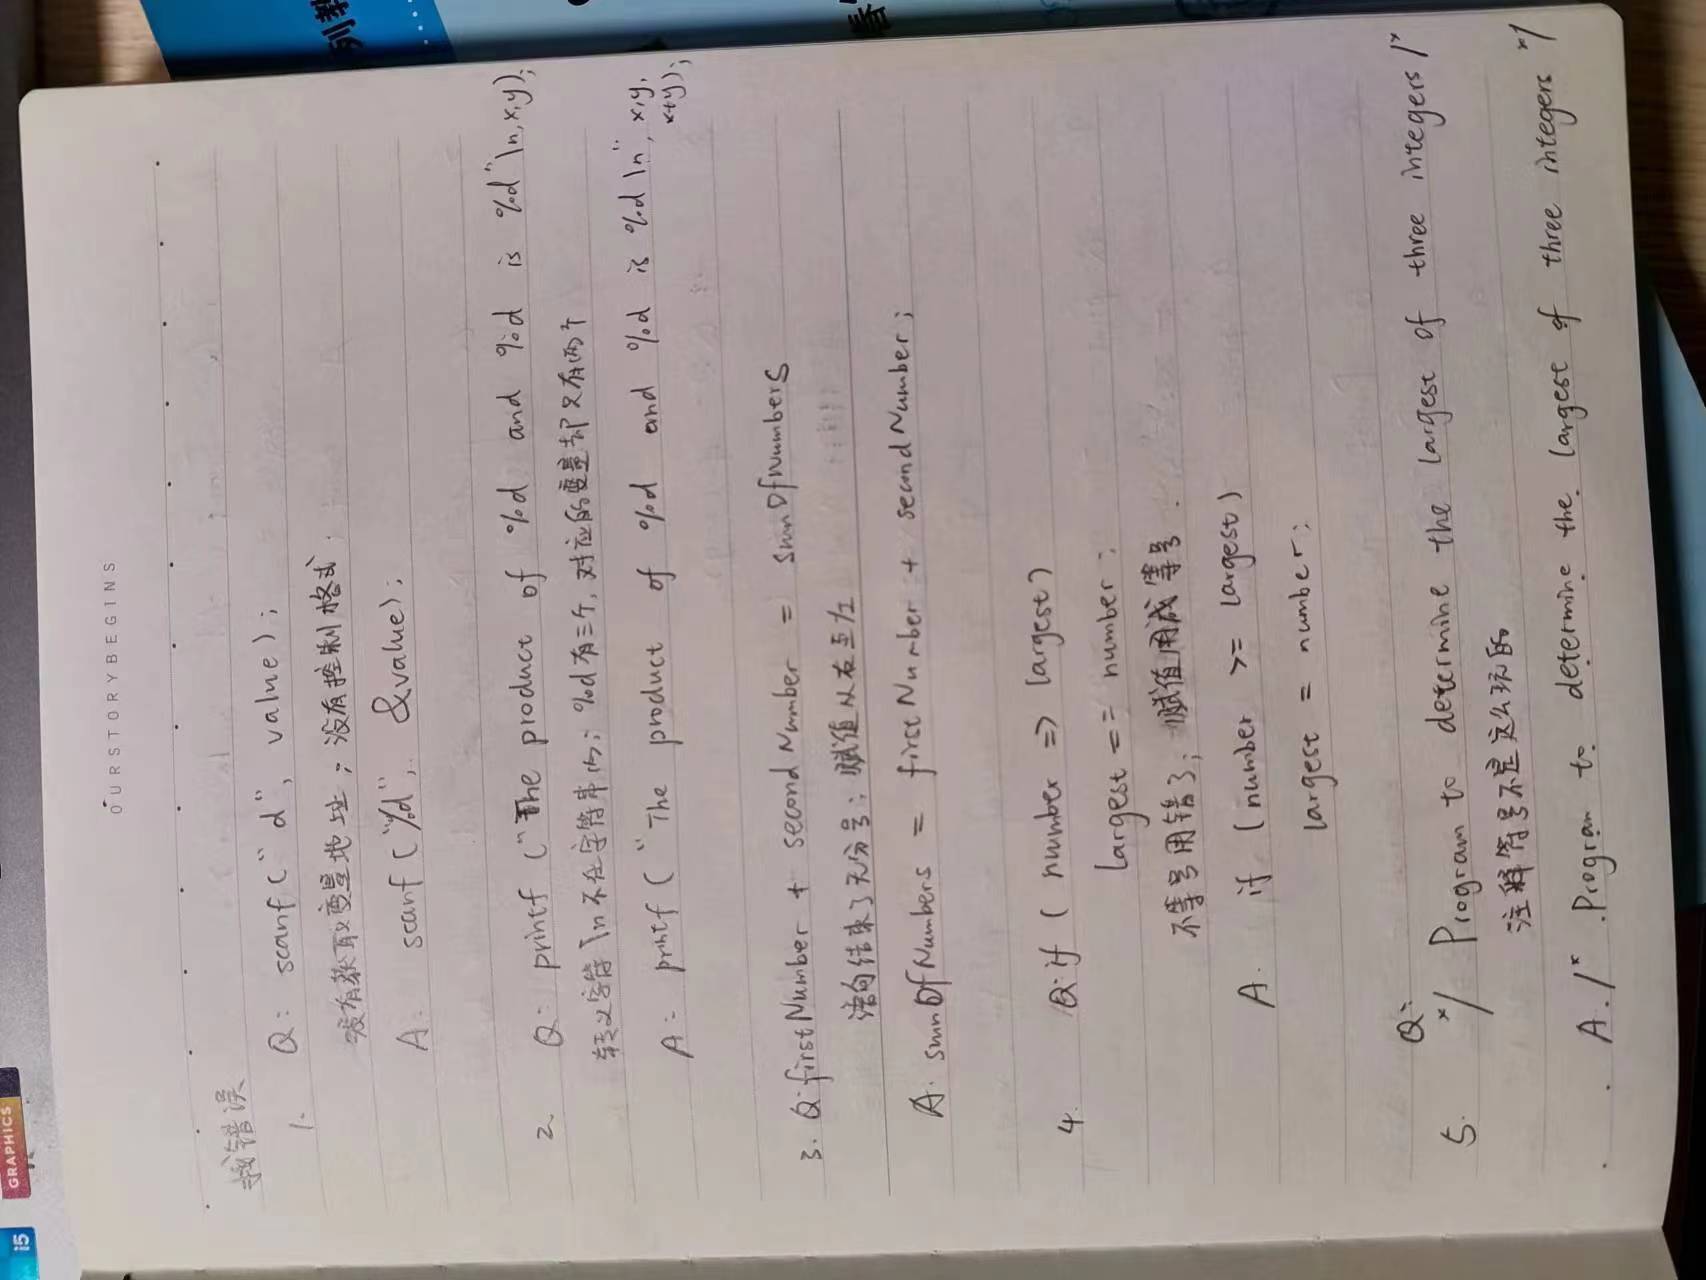 OURSTORYBEGINS
找错误
1. Q: scanf("d", value);
没有获取变量地址; 没有控制格式.
A: scanf("%d", &value);
2. Q: printf("The product of %d and %d is %d"\n,x,y);
转义字符\n不在字符串内; %d有三个,对应的变量却只有两个
A: printf("The product of %d and %d is %d\n", x,y,
x+y);
3. Q: firstNumber + secondNumber = sumOfNumbers
语句结束了无分号; 赋值从右至左
A. sumOfNumbers = firstNumber + secondNumber;
4. Q: if (number => largest)
largest == number;
不等号用错了; 赋值用成等号.
A. if (number >= largest)
largest = number;
5. Q:
*/ Program to determine the largest of three integers /*
注释符号不是这么玩的
A. /* Program to determine the largest of three integers */
GRAPHICS
i5